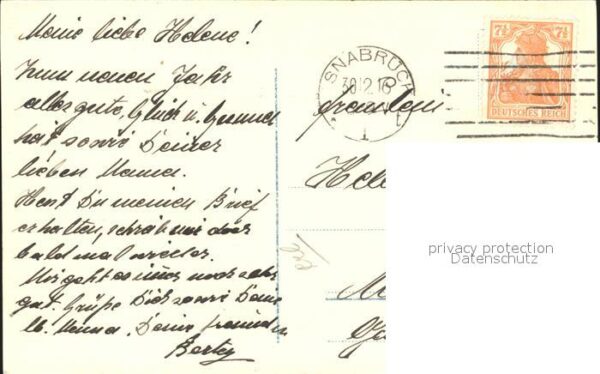 Meine liebe Helene!
Zum neuen Jahr
alles gute, Glück u. Gesund
hat sowie Deiner
lieben Mama.
Hast Du meinen Brief
erhalten, schreib mir doch
bald mal wieder.
Mir geht es immer noch sehr
gut. Grüße Dich sowie Deine
lb. Mama. Deine Freundin
SNABRÜCK
30.12.16
1
7½ 7½
DEUTSCHES REICH
Fräulein
Hele
privacy protection
Datenschutz